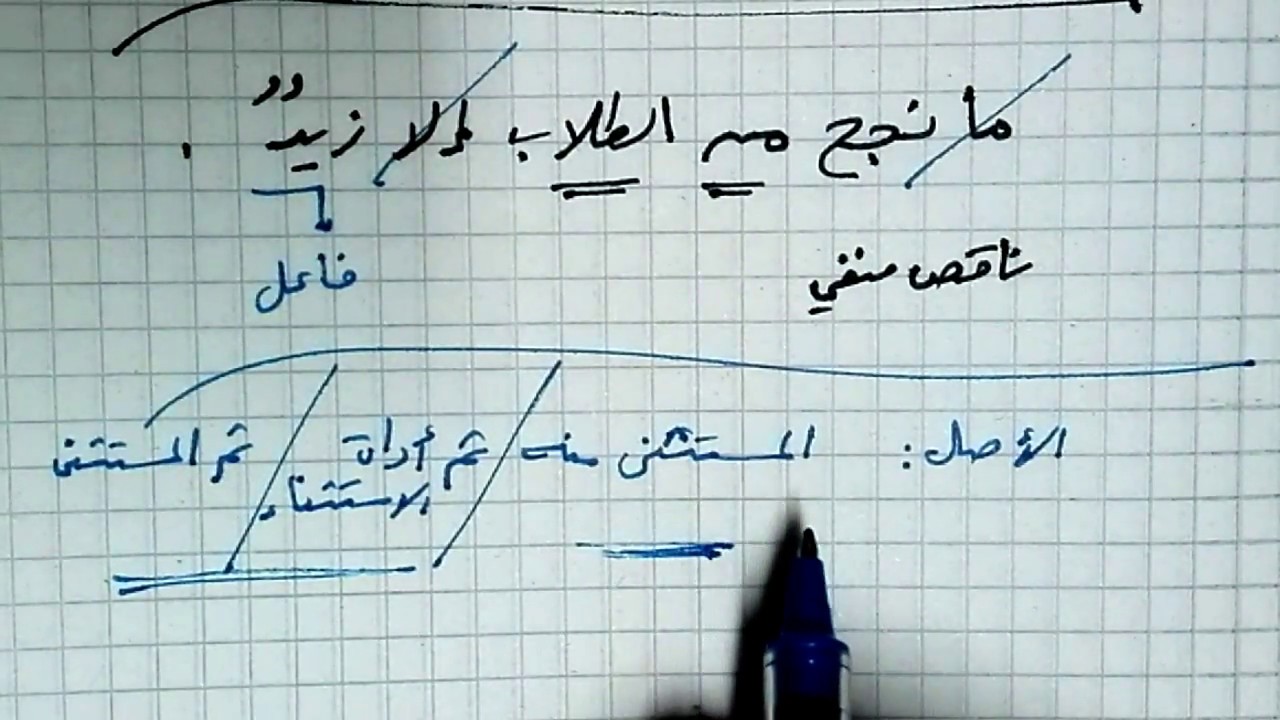 ما نجح من الطلاب إلا زيدٌ .
ناقص منفي
فاعل
الأصل : المستثنى منه ثم أداة الاستثناء ثم المستثنى